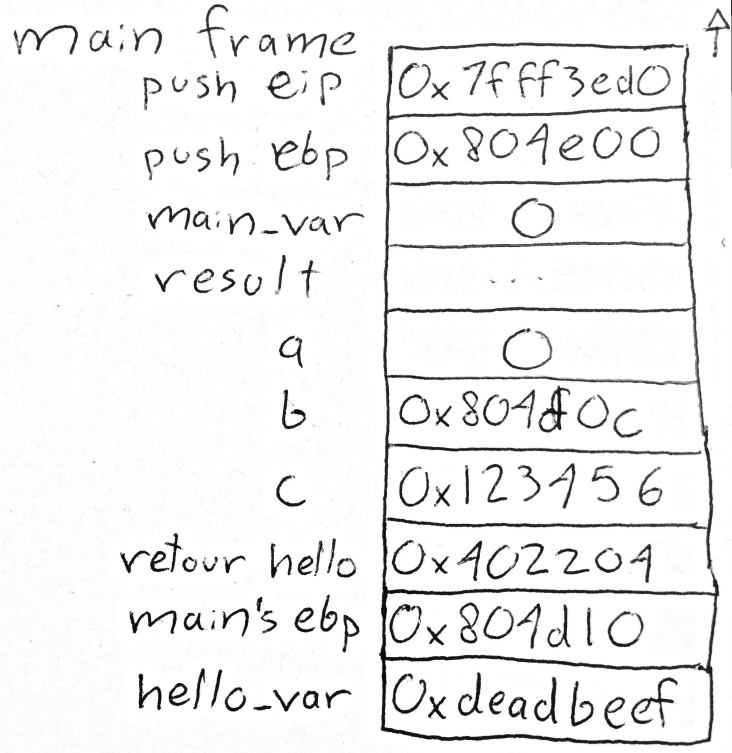 main frame
push eip 0x7fff3ed0
push ebp 0x804e00
main_var 0
result ...
a 0
b 0x804d0c
c 0x123456
retour hello 0x402204
main's ebp 0x804d10
hello_var 0xdeadbeef